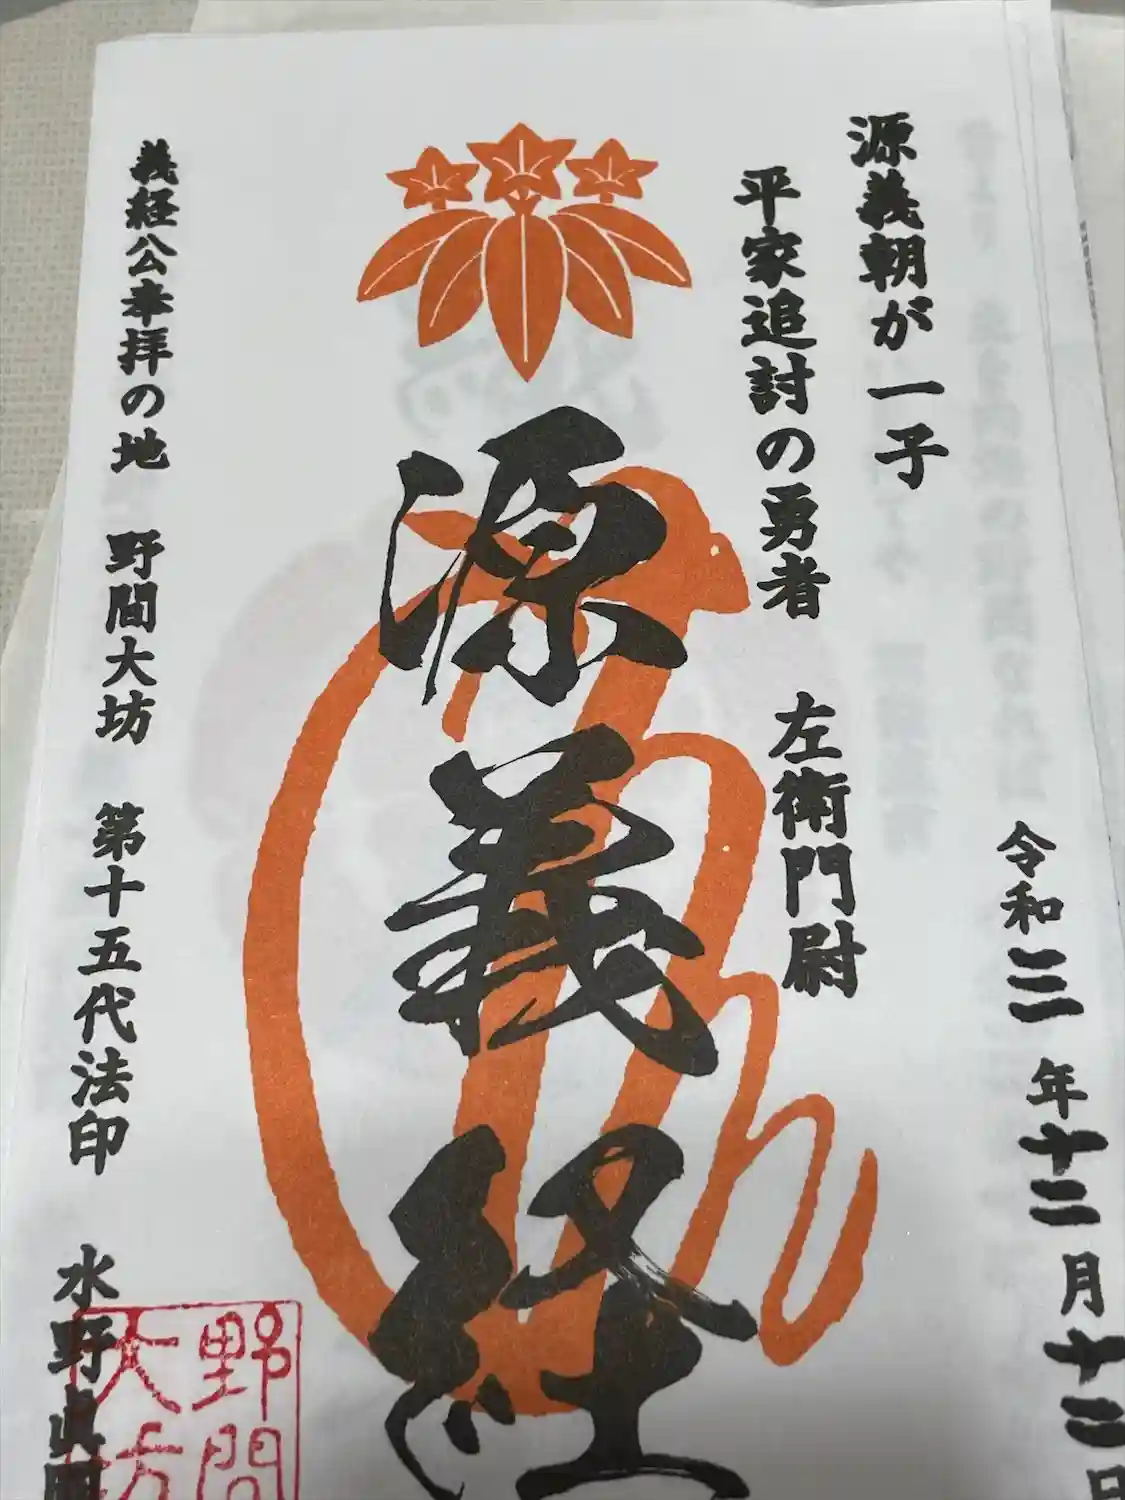 令和三年十二月十二日
源義朝が一子
平家追討の勇者 左衛門尉
源義経
義経公奉拝の地 野間大坊 第十五代法印 水野真圓
野間
大坊